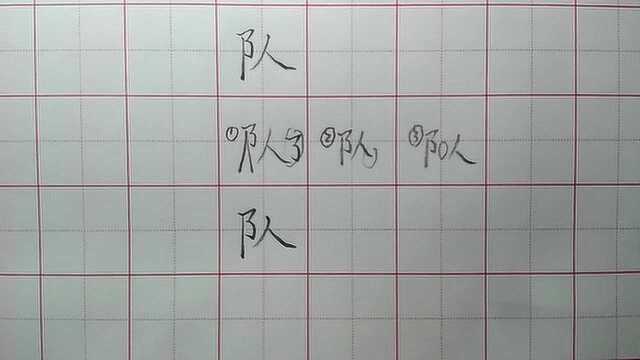 队
①队 ②队 ③队
队